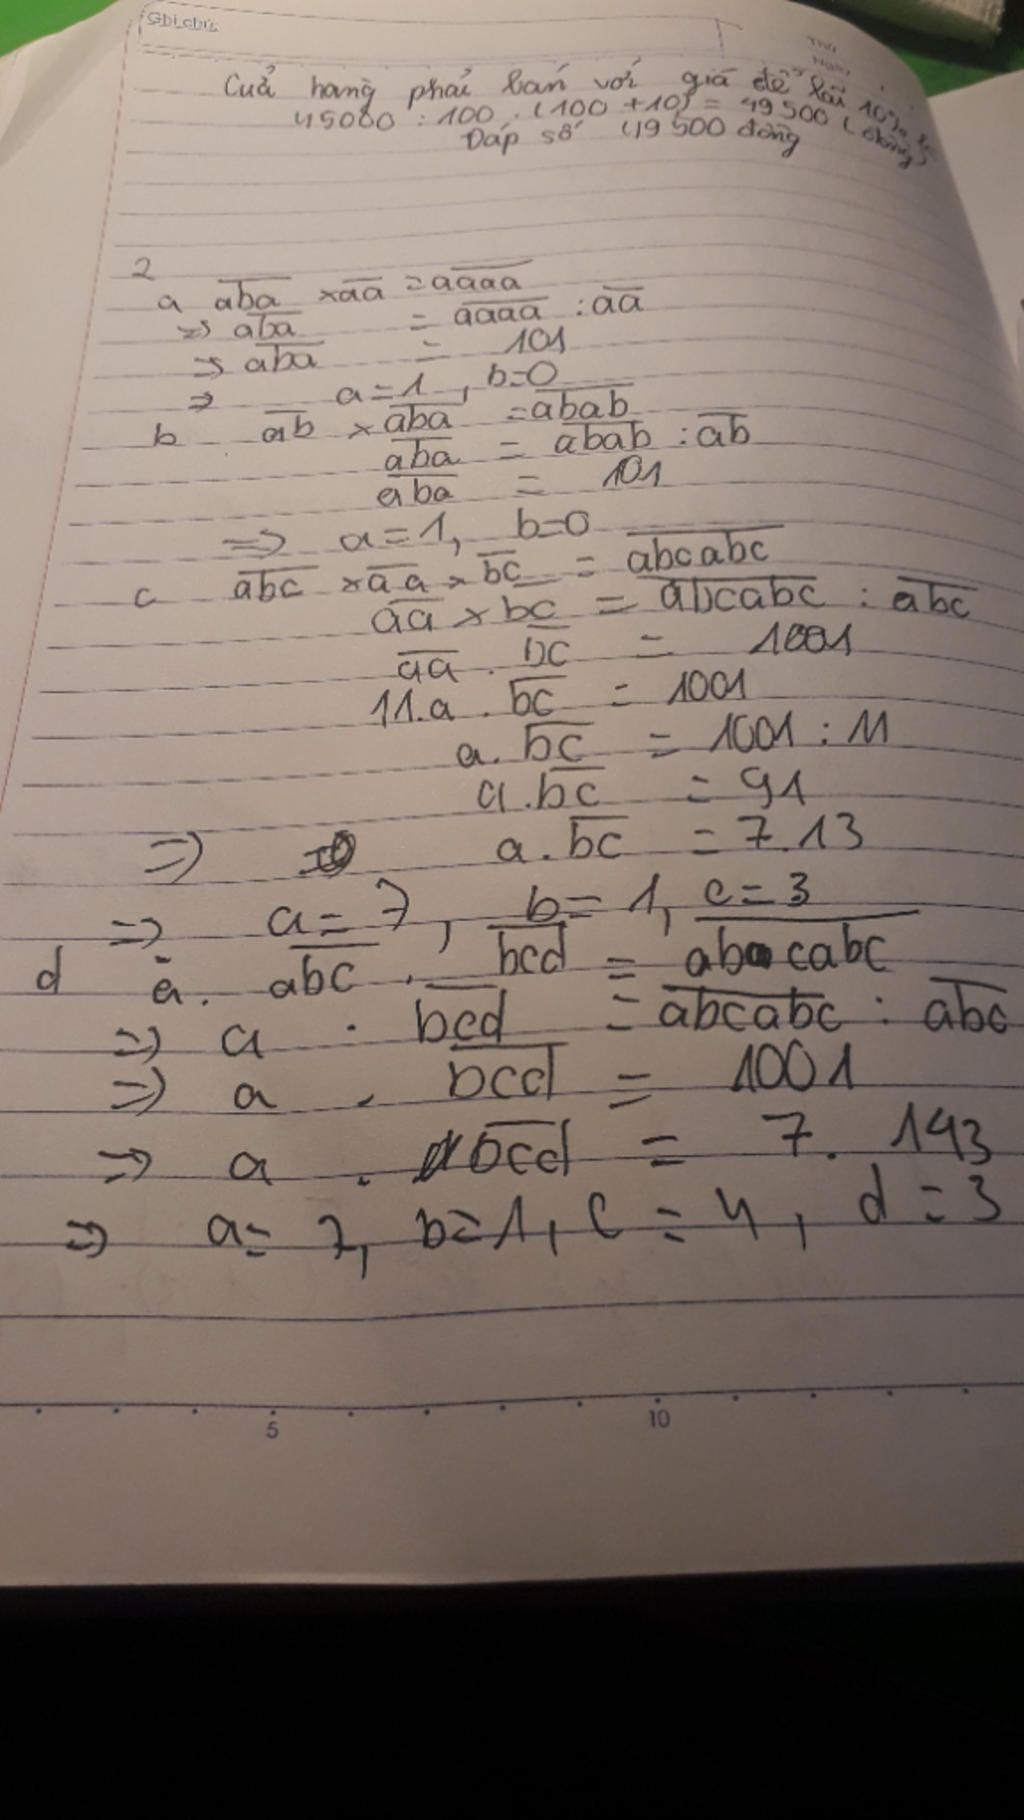 Ghi chú
Thứ
Ngày
Cuả hang phải bán với giá để lãi 10%
45000 : 100 . (100 + 10) = 49500 (đồng)
Đáp số 49 500 đồng
2
a aba × aa = aaaa
=> aba = aaaa : aa
=> aba = 101
=> a = 1, b=0
b ab × aba = abab
aba = abab : ab
aba = 101
=> a = 1, b=0
c abc × aa × bc = abcabc
aa × bc = abcabc : abc
aa . bc = 1001
11.a . bc = 1001
a. bc = 1001 : 11
a . bc = 91
=> a . bc = 7.13
=> a = 7, b = 1, c = 3
d a. abc . bcd = abcabc
=> a . bcd = abcabc : abc
=> a . bcd = 1001
=> a . bcd = 7. 143
=> a = 7, b = 1, c = 4, d = 3
5 10